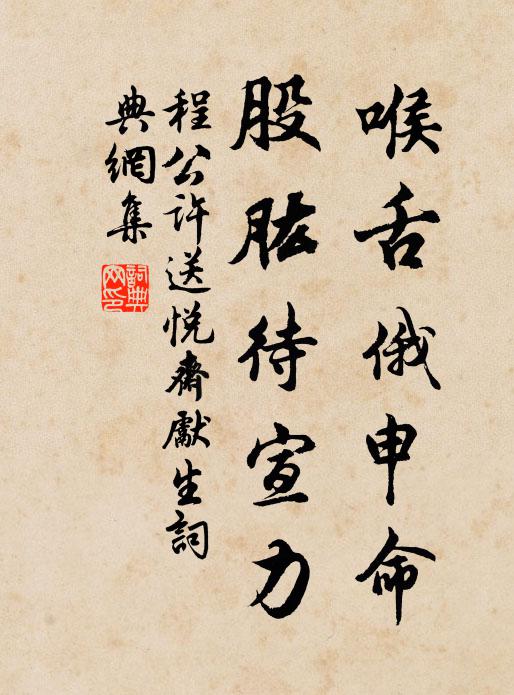 喉舌俄申命
股肱待宣力
程公许送悦齋獻生詞
典網集
詞典网印